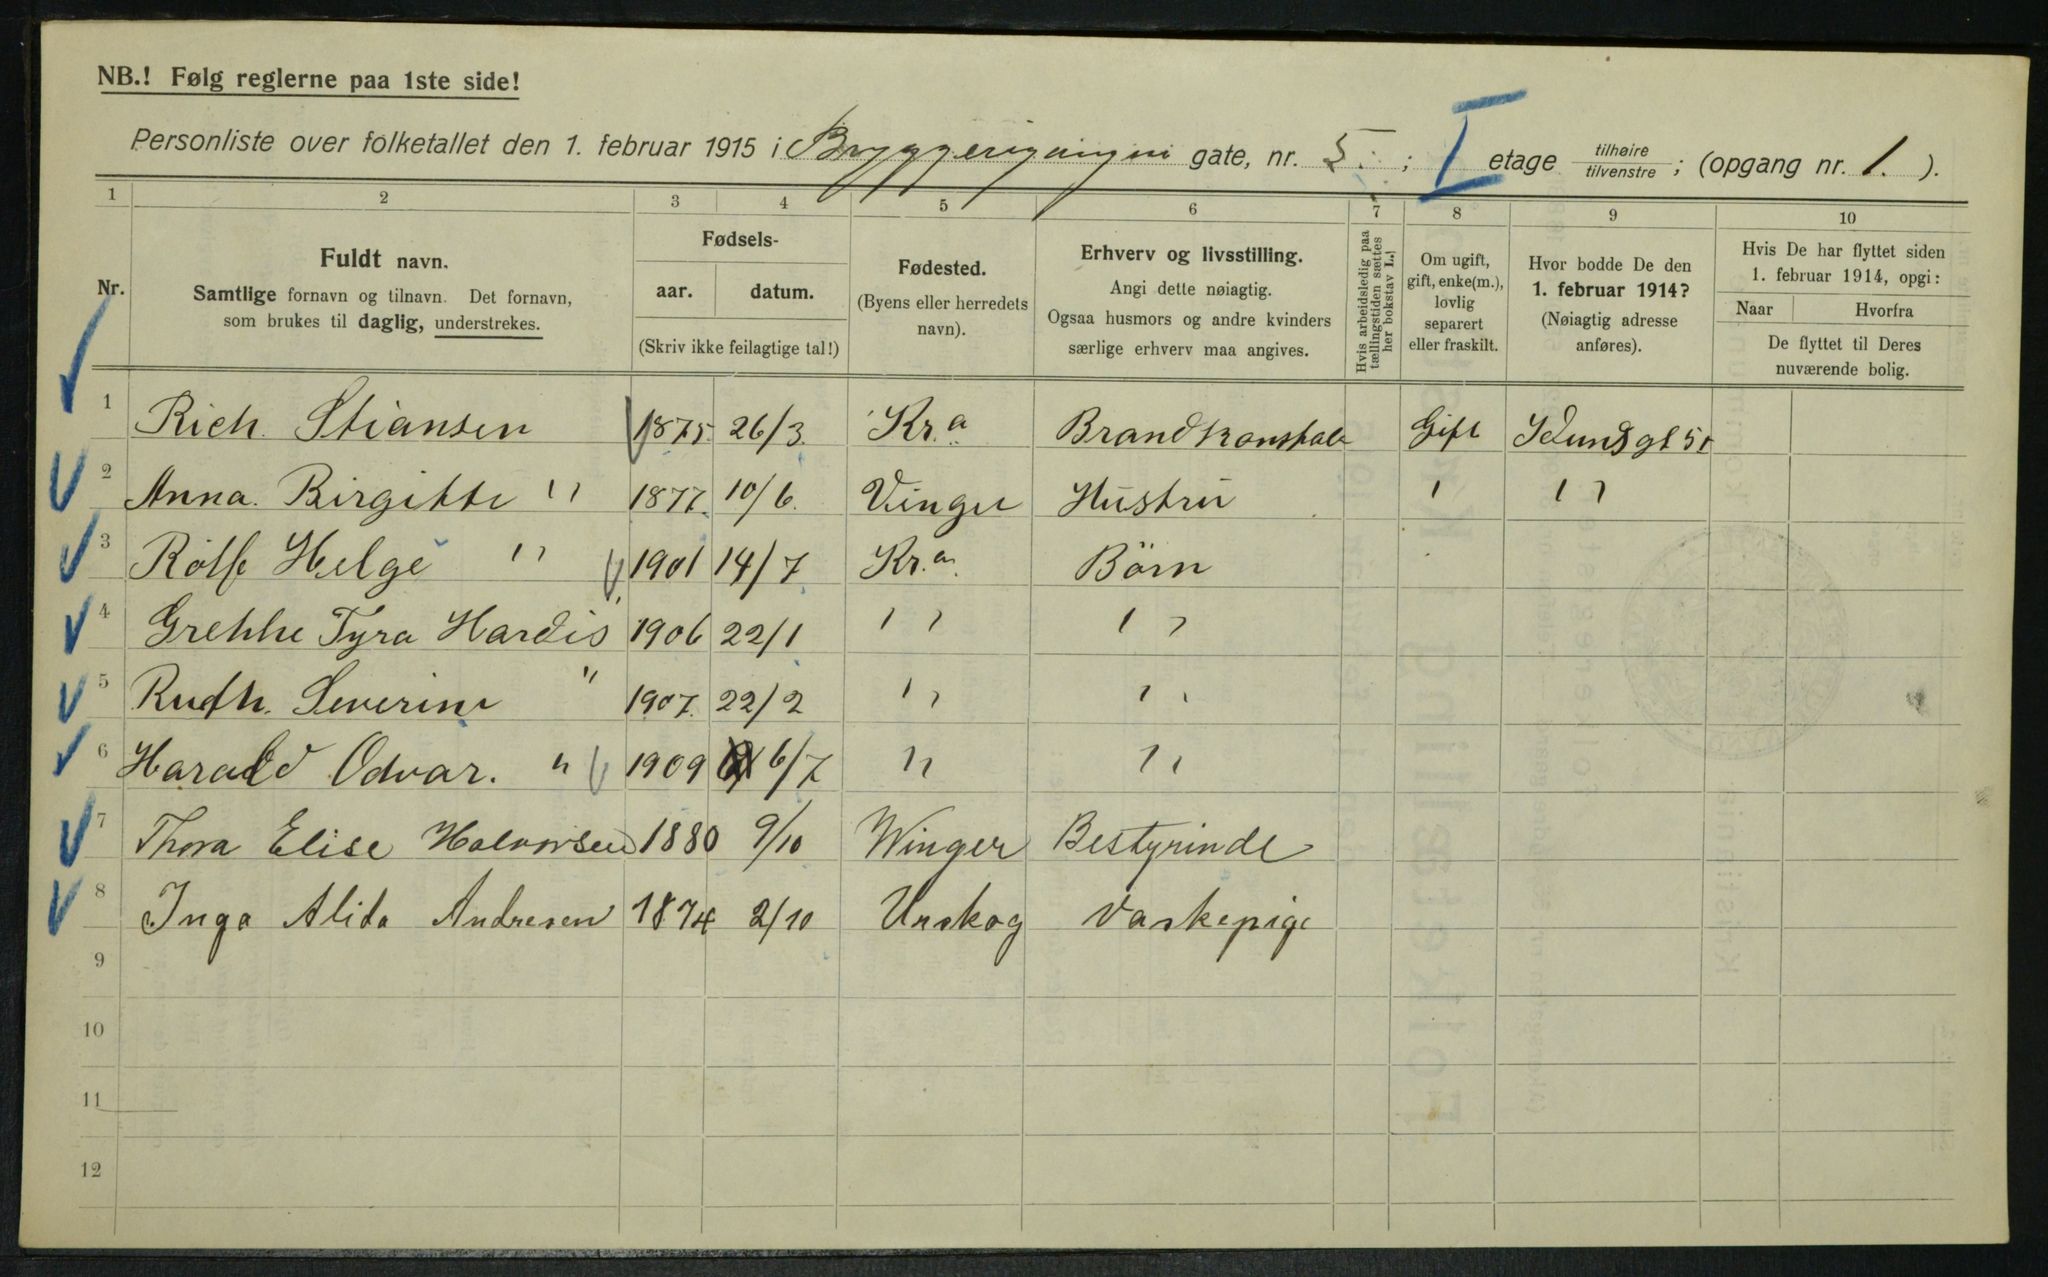 NB.! Følg reglerne paa 1ste side!
Personliste over folketallet den 1. februar 1915 i Bryggerigangen gate, nr. 5. ; I etage tilhøire/tilvenstre ; (opgang nr. 1. ).
1 2 3 4 5 6 7 8 9 10
Nr.
Fuldt navn.
Samtlige fornavn og tilnavn. Det fornavn,
som brukes til daglig, understrekes.
Fødsels-
aar. datum.
(Skriv ikke feilagtige tal!)
Fødested.
(Byens eller herredets
navn).
Erhverv og livsstilling.
Angi dette nøiagtig.
Ogsaa husmors og andre kvinders
særlige erhverv maa angives.
Hvis arbeidsledig paa
tællingstiden sættes
her bokstav L.)
Om ugift,
gift, enke(m.),
lovlig
separert
eller fraskilt.
Hvor bodde De den
1. februar 1914?
(Nøiagtig adresse
anføres).
Hvis De har flyttet siden
1. februar 1914, opgi:
Naar Hvorfra
De flyttet til Deres
nuværende bolig.
1 Rich. Stiansen 1875. 26/3. Kr.a Brandkonstabe Gift Idunsgt 5
2 Anna. Birgitte " 1877. 10/6. Vinger Hustru " "
3 Rolf Helge " 1901 14/7 Kr.a. Börn
4 Grethe Tyra Hardis " 1906 22/1 " "
5 Ruth. Severine " 1907. 22/2 " "
6 Harald Odvar. " 1909 6/7 " "
7 Thora Elise Halvorsen 1880 9/10 Winger Bestyrinde
8 Inga Alida Andresen 1874 2/10 Urskog Vaskepige
9
10
11
12